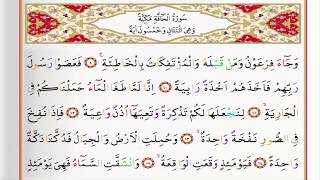 سُورَةُ الْحَاقَّةِ مَكِّيَّةٌ
وَهِيَ اثْنَتَانِ وَخَمْسُونَ آيَةً
وَجَٓاءَ فِرْعَوْنُ وَمَنْ قَبْلَهُ وَالْمُؤْتَفِكَاتُ بِالْخَاطِئَةِۚ ﴿٩﴾ فَعَصَوْا رَسُولَ
رَبِّهِمْ فَاَخَذَهُمْ اَخْذَةً رَابِيَةً ﴿١٠﴾ اِنَّا لَمَّا طَغَا الْمَٓاءُ حَمَلْنَاكُمْ فِي
الْجَارِيَةِۙ ﴿١١﴾ لِنَجْعَلَهَا لَكُمْ تَذْكِرَةً وَتَعِيَهَٓا اُذُنٌ وَاعِيَةٌ ﴿١٢﴾ فَاِذَا نُفِخَ
فِي الصُّورِ نَفْخَةٌ وَاحِدَةٌۙ ﴿١٣﴾ وَحُمِلَتِ الْاَرْضُ وَالْجِبَالُ فَدُكَّتَا دَكَّةً
وَاحِدَةًۙ ﴿١٤﴾ فَيَوْمَئِذٍ وَقَعَتِ الْوَاقِعَةُۙ ﴿١٥﴾ وَانْشَقَّتِ السَّمَٓاءُ فَهِيَ يَوْمَئِذٍ